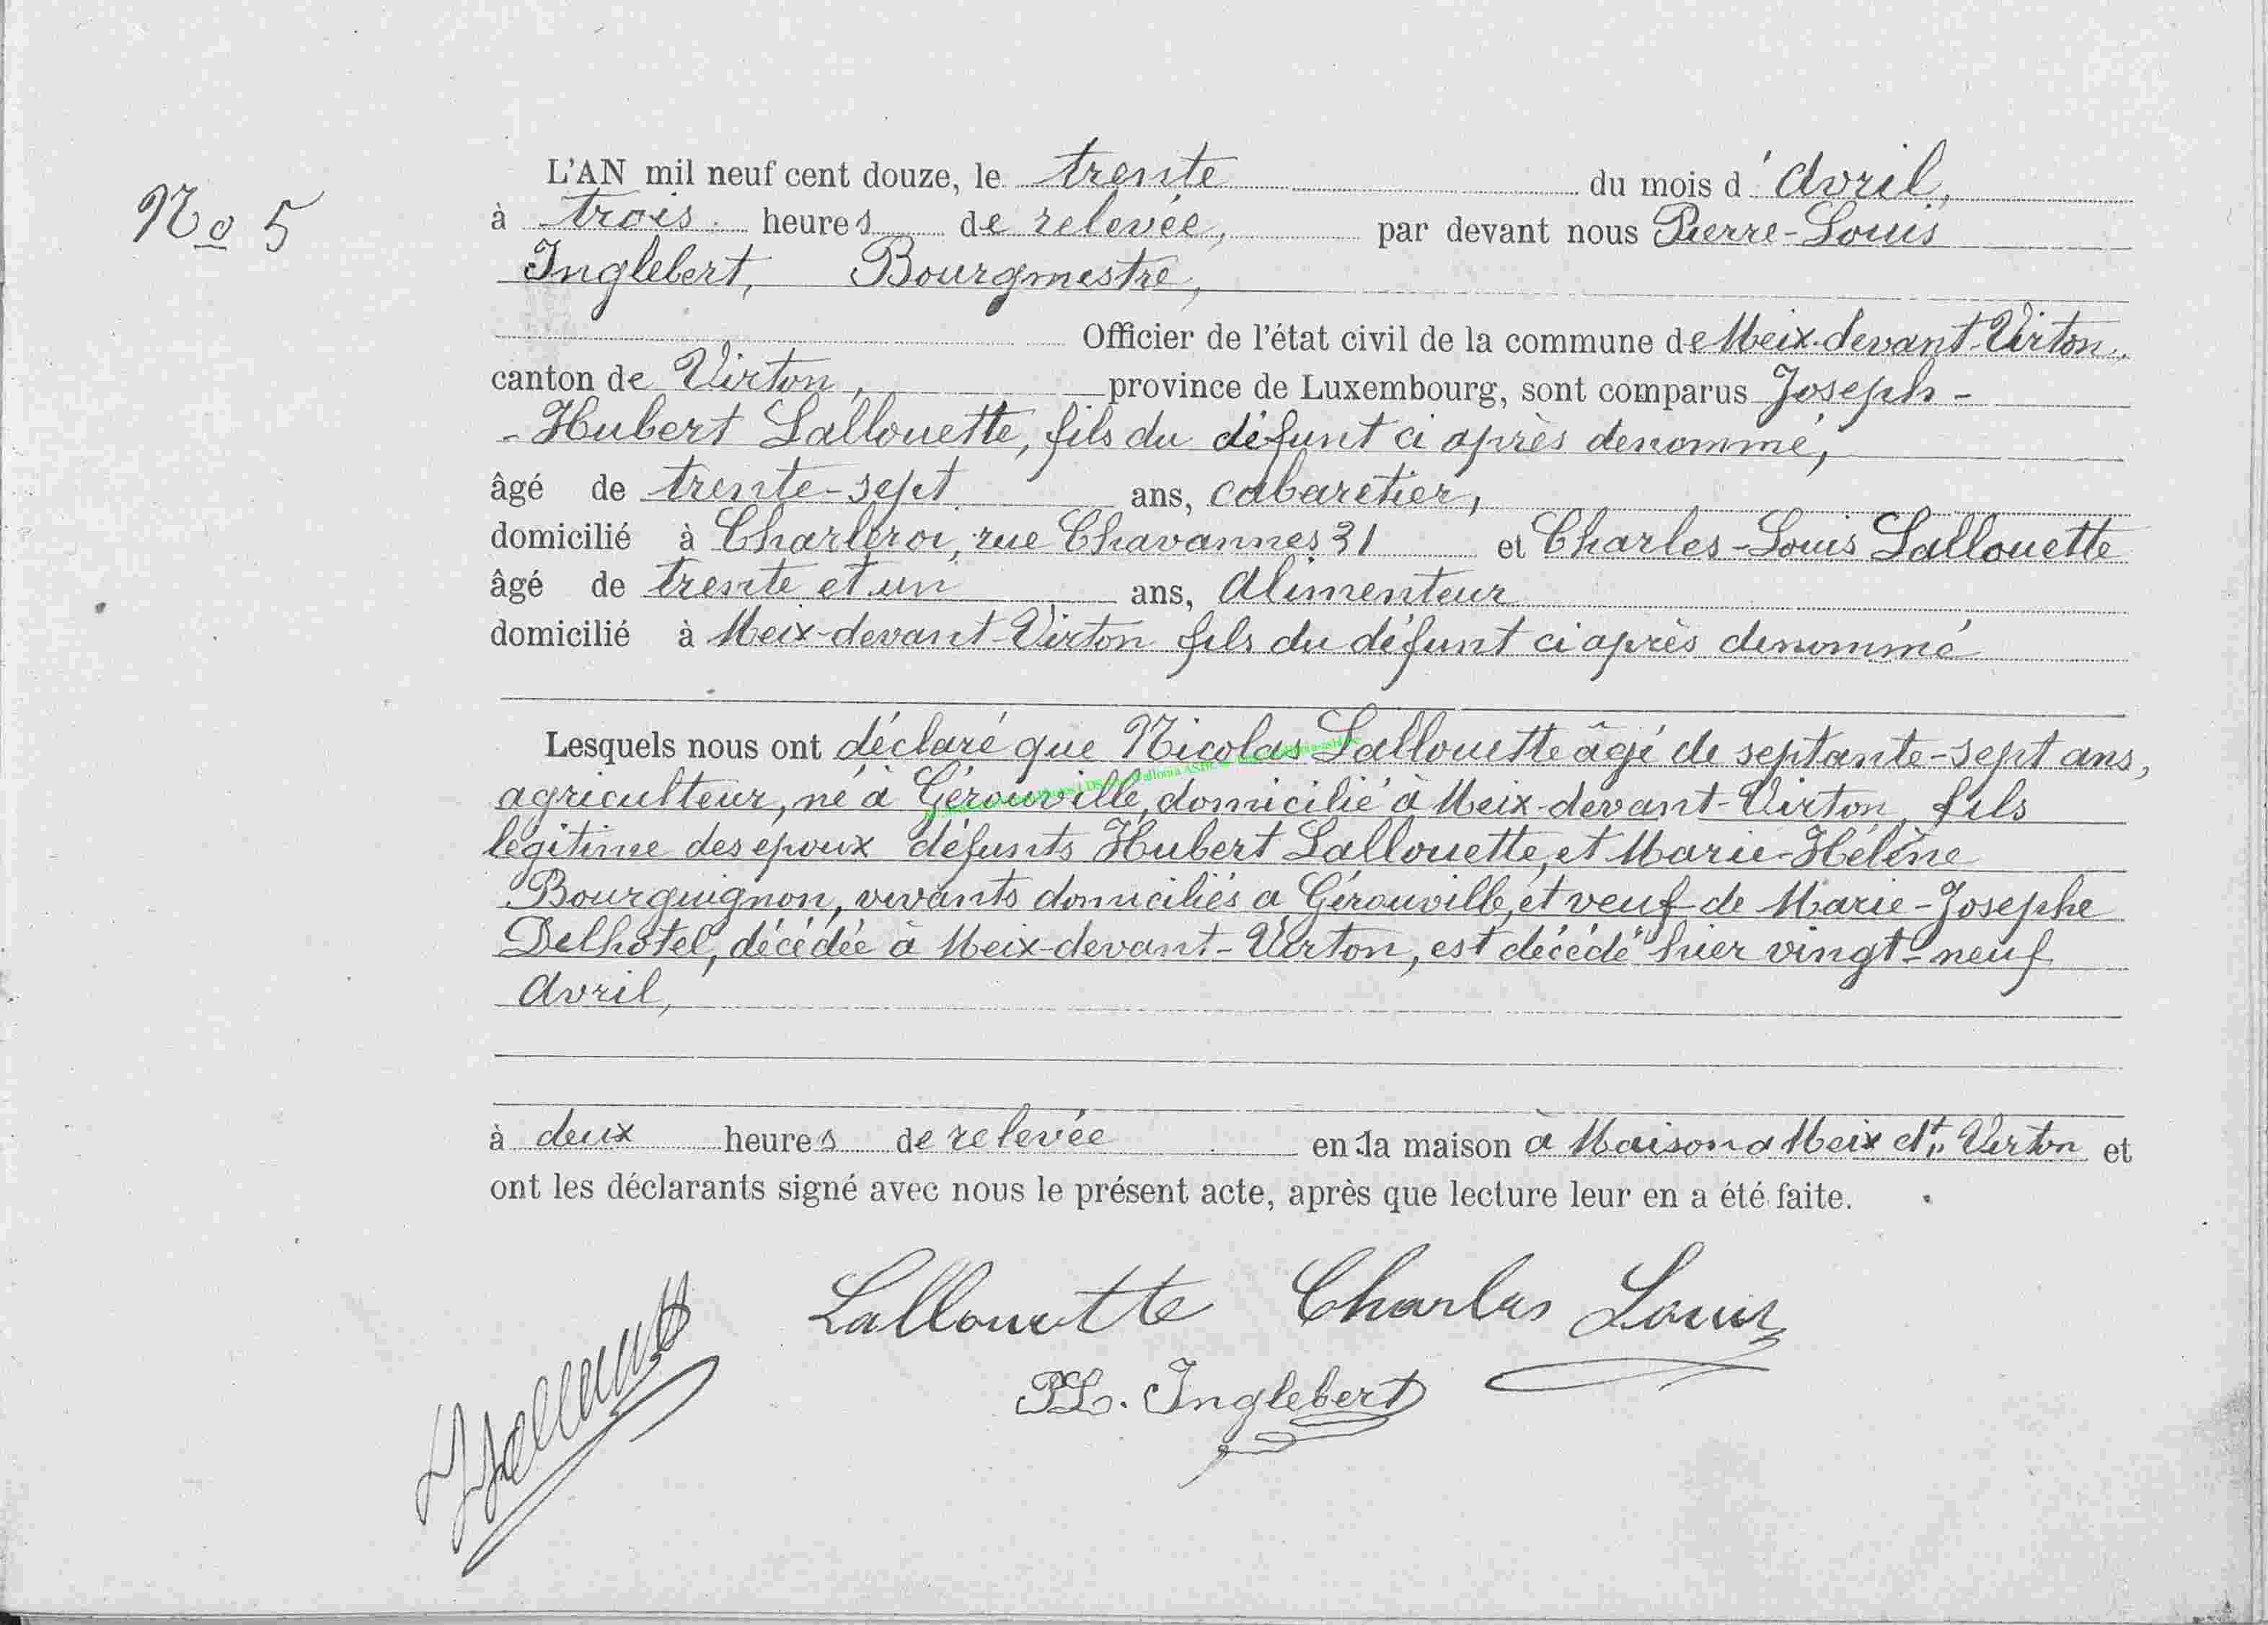 No 5
L'AN mil neuf cent douze, le trente du mois d'Avril,
à trois heures de relevée, par devant nous Pierre-Louis
Inglebert, Bourgmestre,
Officier de l'état civil de la commune de Meix-devant-Virton,
canton de Virton, province de Luxembourg, sont comparus Joseph-
-Hubert Lallouette, fils du défunt ci après denommé,
âgé de trente-sept ans, cabaretier,
domicilié à Charleroi, rue Chavannes 31 et Charles-Louis Lallouette
âgé de trente et un ans, Alimenteur
domicilié à Meix-devant-Virton fils du défunt ci après denommé
Lesquels nous ont déclaré que Nicolas Lallouette âgé de septante-sept ans,
agriculteur, né à Gérouville, domicilié à Meix-devant-Virton, fils
légitime des epoux défunts Hubert Lallouette, et Marie-Hélène
Bourguignon, vivants domiciliés a Gérouville, et veuf de Marie-Josephe
Delhotel, décédée à Meix-devant-Virton, est décédé hier vingt-neuf
Avril,
à deux heures de relevée en la maison a Maison a Meix dt. Virton et
ont les déclarants signé avec nous le présent acte, après que lecture leur en a été faite.
Lallouette Charles Louis
PL. Inglebert